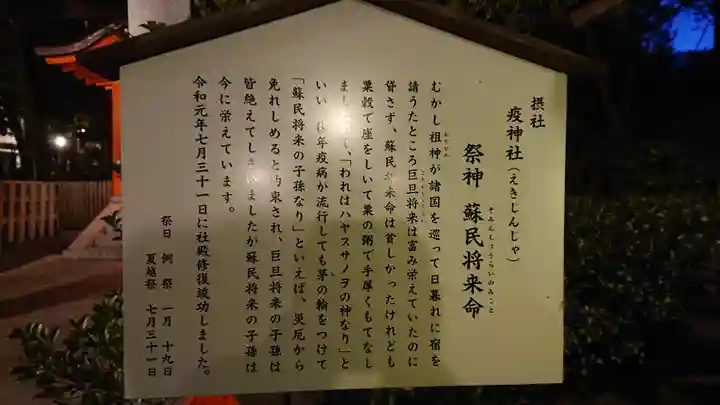 摂社
疫神社(えきじんじゃ)
祭神 蘇民将来命
そみんしょうらいのみこと
むかし祖神が諸国を巡って日暮れに宿を
おやがみ
請うたところ巨旦将来は富み栄えていたのに
こたんしょうらい
貸さず、蘇民将来命は貧しかったけれども
粟殻で座をしいて粟の粥で手厚くもてなし
ました。「われはハヤスサノヲの神なり」と
いい 後年疫病が流行しても茅の輪をつけて
「蘇民将来の子孫なり」といえば、災厄から
免れしめると約束され、巨旦将来の子孫は
皆絶えてしまいましたが蘇民将来の子孫は
今に栄えています。
令和元年七月三十一日に社殿修復竣功しました。
祭日 例祭 一月 十九日
夏越祭 七月三十一日